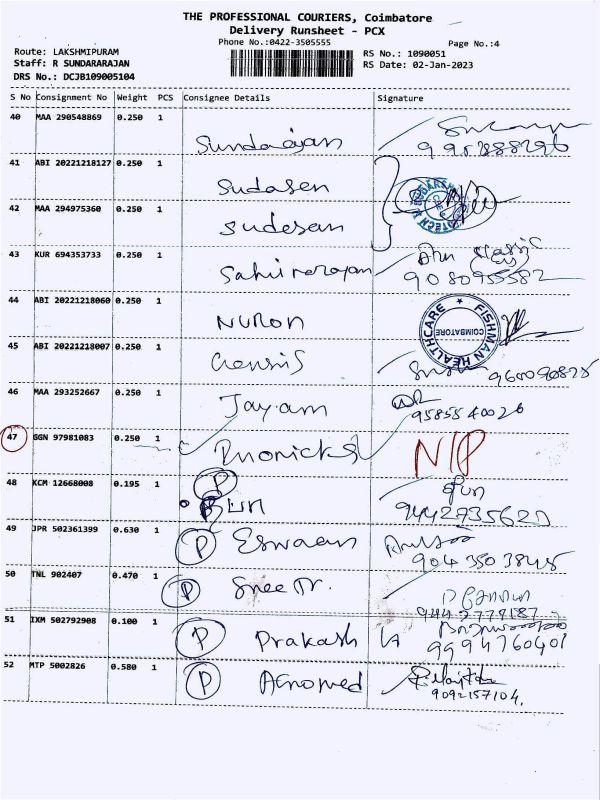 THE PROFESSIONAL COURIERS, Coimbatore
Delivery Runsheet - PCX
Phone No.:0422-3505555
Page No.:4
Route: LAKSHMIPURAM
RS No.: 1090051
Staff: R SUNDARARAJAN
RS Date: 02-Jan-2023
DRS No.: DCJB109005104
S No Consignment No Weight PCS Consignee Details Signature
40 MAA 290548869 0.250 1
Sundarajan
41 ABI 20221218127 0.250 1
Sudasen
42 MAA 294975360 0.250 1
Sudesan
43 KUR 694353733 0.250 1
9080955582
44 ABI 20221218060 0.250 1
Nuron
FISHMAN HEALTHCARE
COIMBATORE
45 ABI 20221218007 0.250 1
46 MAA 293252667 0.250 1
Jayam
9585540026
47 GGN 97981083 0.250 1
N/P
48 KCM 12668008 0.195 1
P
9442735620
49 JPR 502361399 0.630 1
P Eswaran
904 350 3845
50 TNL 902407 0.470 1
P Sree Tr.
9442779187
51 IXM 502792908 0.100 1
P Prakash
9994760401
52 MTP 5002826 0.580 1
P Agnomed
9092157104.